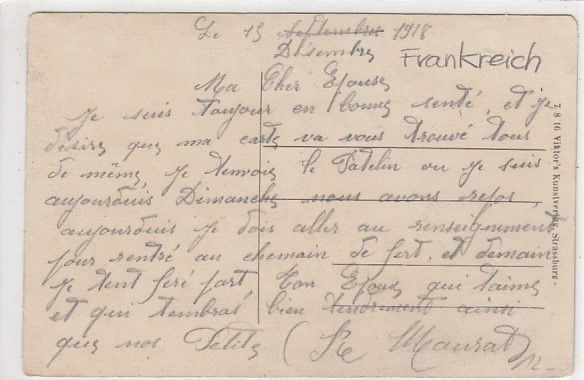 Le 15 Septembre 1918
Désembre
Frankreich
Ma Cher Epouse
Je suis toujour en bonne senté, et je
désire que ma carte va vous trouvé tous
de même, je tenvoie le Patelin ou je suis
aujourduis Dimanche nous avons repos,
aujourduis je dois aller au renseignement
pour rentré au chemain de fert, et demain
je tent feré part Ton Epoux qui taime
et qui tembras bien tendrement ainsi
que nos Petits
7 8 16 Viktor's Kunstverlag, Strassburg.